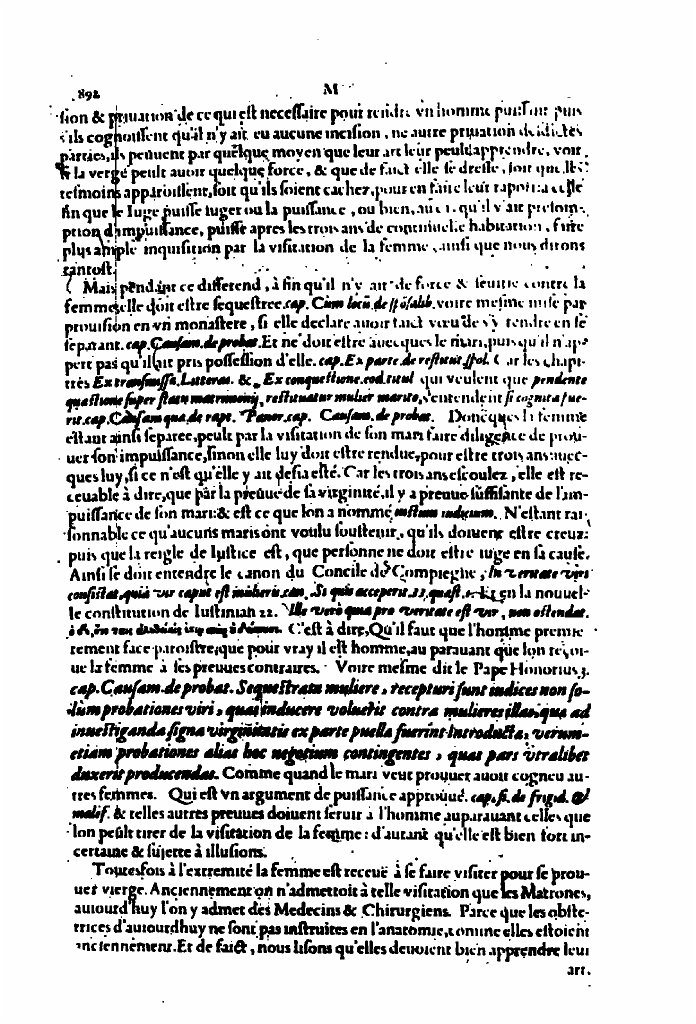 892
M
sion & priuation de ce qui est necessaire pour rendre vn homme puissant puis
s'ils cognoissent qu'il n'y ait eu aucune incision, ne autre priuation desdictes
parties, ils peuuent par quelque moyen que leur art leur peult apprendre, voir
si la verge peult auoir quelque force, & que de faict elle se dresse, soit que les
tesmoins apparoissent, soit qu'ils soient cachez, pour en faire leur raport: a celle
fin que le Iuge puisse iuger ou la puissance, ou bien, au cas qu'il y ait presom-
ption d'impuissance, puisse apres les trois ans de continuelle habitation, faire
plus ample inquisition par la visitation de la femme, ainsi que nous dirons
tantost.
Mais pendant ce differend, à fin qu'il n'y ait de force & seuitie contre la
femme, elle doit estre sequestree. cap. Cùm locū. de spōsalib. voire mesme mise par
prouision en vn monastere, si elle declare auoir faict vœu de s'y rendre en se
separant. cap. Causam. de probat. Et ne doit estre auecques le mari, puis qu'il n'ap-
pert pas qu'il ait pris possession d'elle. cap. Ex parte. de restitut. spol. Car les chapi-
tres Ex transmissa. Litteras. & Ex conquestione. eod. titul qui veulent que pendente
quæstione super statu matrimonij, restituatur mulier marito, s'entendent si cognita fue-
rit. cap. Causam qua. de rapt. Panor. cap. Causam. de probat. Doncques la femme
estant ainsi separee, peult par la visitation de son mari faire diligence de prou-
uer son impuissance, sinon elle luy doit estre rendue, pour estre trois ans auec-
ques luy, si ce n'est qu'elle y ait desia esté. Car les trois ans escoulez, elle est re-
ceuable à dire, que par la preuue de sa virginité, il y a preuue suffisante de l'im-
puissance de son mari: & est ce que lon a nommé iustum iudicium. N'estant rai-
sonnable ce qu'aucuns maris ont voulu soustenir, qu'ils doiuent estre creuz:
puis que la reigle de Iustice est, que personne ne doit estre iuge en sa cause.
Ainsi se doit entendre le canon du Concile de Compiegne, In veritate viri
consistat, quia vir caput est mulieris. can. Si quis acceperit. 33. quæst. Et en la nouuel-
le constitution de Iustinian 22. Ille verò qua pro veritate est vir, non ostendat.
C'est à dire, Qu'il faut que l'homme premie
rement face paroistre, que pour vray il est homme, au parauant que lon reçoi-
ue la femme à ses preuues contraires. Voire mesme dit le Pape Honorius 3.
cap. Causam. de probat. Sequestrata muliere, recepturi sunt iudices non so-
lùm probationes viri, quas inducere voluerit contra mulieres illas, quæ ad
inuestiganda signa virginitatis ex parte puella fuerint introducta, verum-
etiam probationes alias hoc negotium contingentes, quas pars vtralibet
duxerit producendas. Comme quand le mari veut prouuer auoir cogneu au-
tres femmes. Qui est vn argument de puissance approuué. cap. fi. de frigid. &
malif. & telles autres preuues doiuent seruir à l'homme auparauant celles que
lon peult tirer de la visitation de la femme: d'autant qu'elle est bien fort in-
certaine & sujette à illusions.
Toutesfois à l'extremité la femme est receuë à se faire visiter pour se prou-
uer vierge. Anciennement on n'admettoit à telle visitation que les Matrones,
auiourd'huy l'on y admet des Medecins & Chirurgiens. Parce que les obste-
trices d'auiourdhuy ne sont pas instruites en l'anatomie, comme elles estoient
anciennement. Et de faict, nous lisons qu'elles deuoient bien apprendre leur
art.